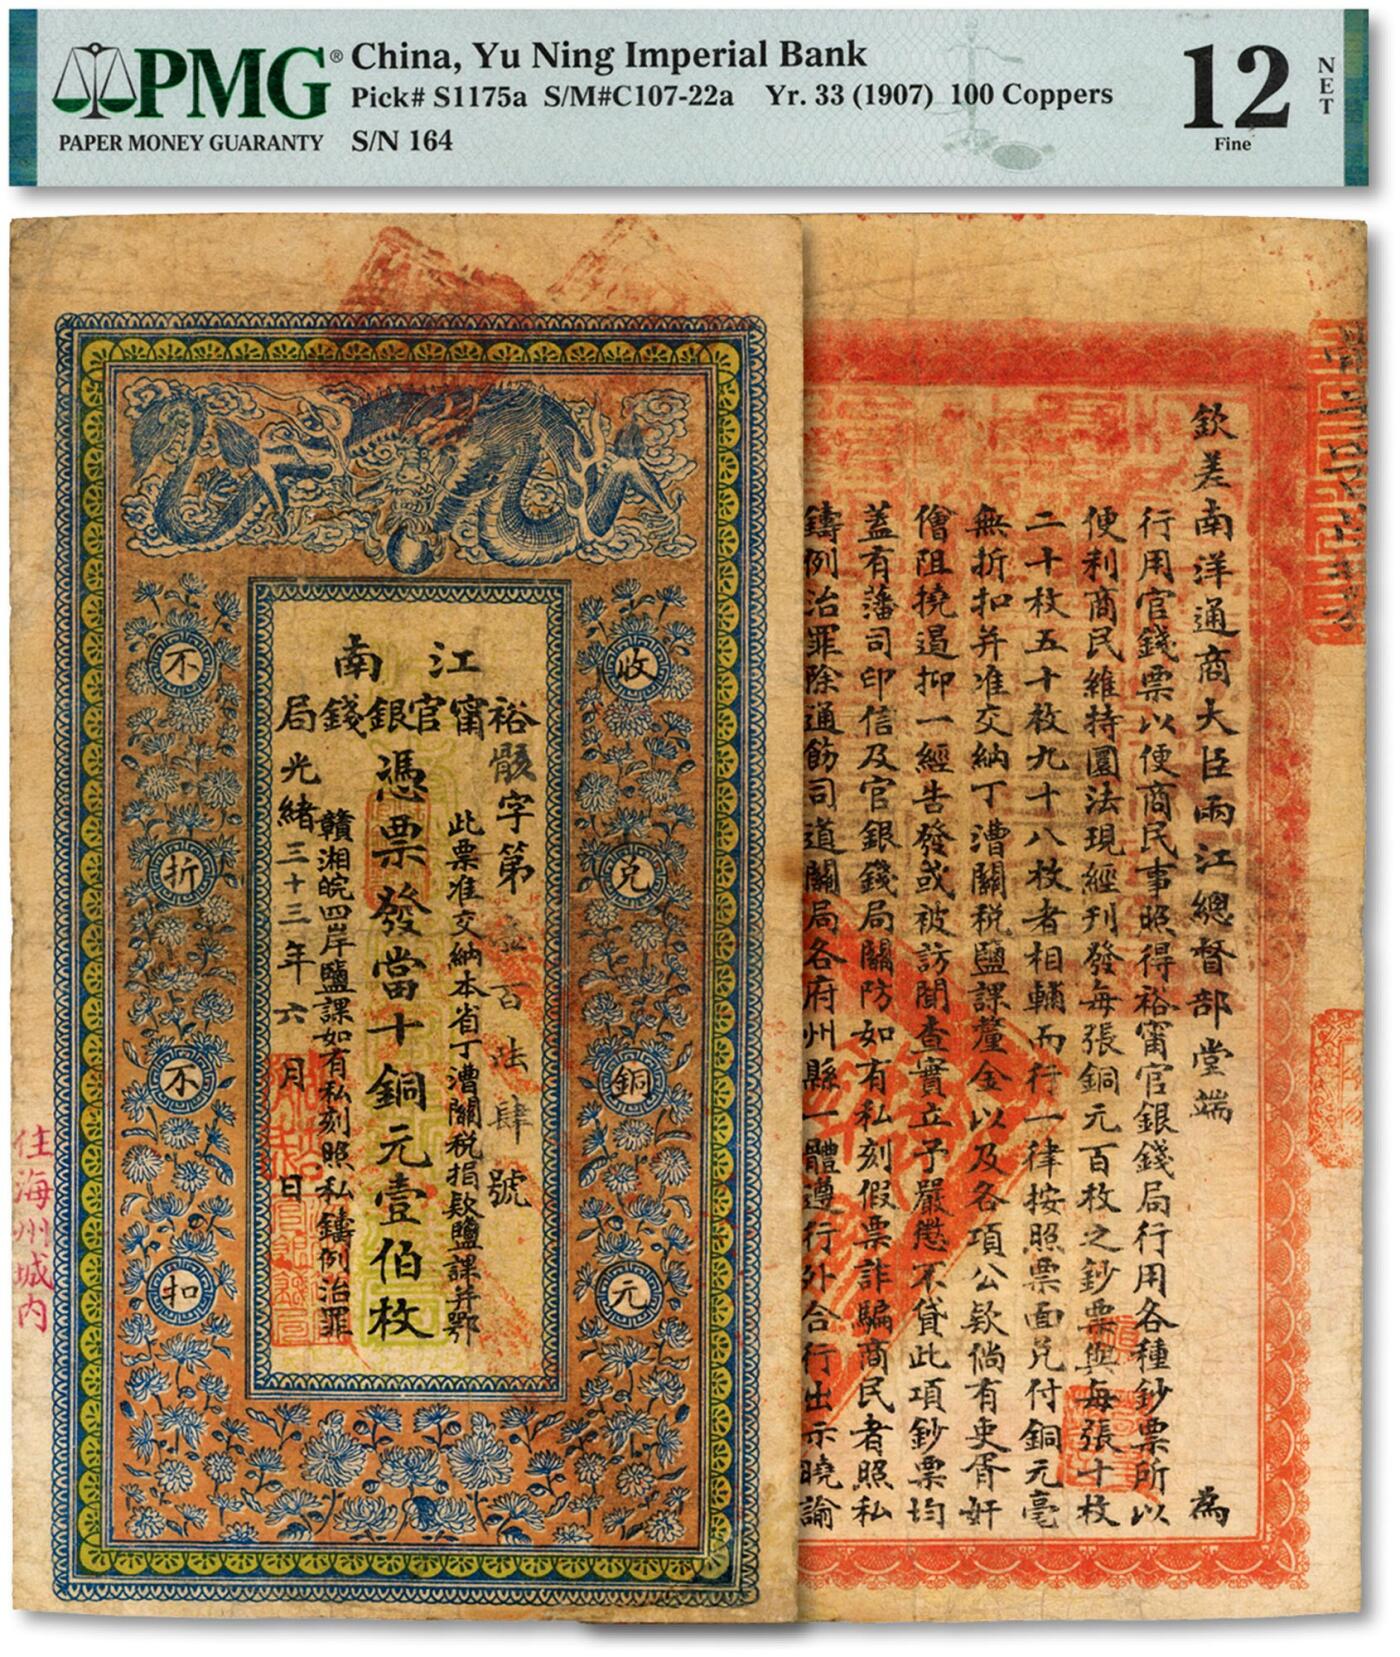 PMG®
PAPER MONEY GUARANTY
China, Yu Ning Imperial Bank
Pick# S1175a S/M#C107-22a Yr. 33 (1907) 100 Coppers
S/N 164
12
NET
Fine
江南
裕甯官銀錢局
骸字第壹百陆肆號
此票准交納本省丁漕關税捐欵鹽課并鄂
憑票發當十銅元壹伯枚
贛湘皖四岸鹽課如有私刻照私鑄例治罪
光緒三十三年六月 日
收兑銅元
不折不扣
住海州城内
欽差南洋通商大臣兩江總督部堂端 為
行用官錢票以便商民事照得裕甯官銀錢局行用各種鈔票所以
便利商民維持圜法現經刊發每張銅元百枚之鈔票與每張十枚
二十枚五十枚九十八枚者相輔而行一律按照票面兑付銅元毫
無折扣并准交納丁漕關税鹽課釐金以及各項公欵倘有吏胥奸
儈阻撓遏抑一經告發或被訪聞查實立予嚴懲不貸此項鈔票均
蓋有藩司印信及官銀錢局關防如有私刻假票詐騙商民者照私
鑄例治罪除通飭司道關局各府州縣一體遵行外合行出示曉諭